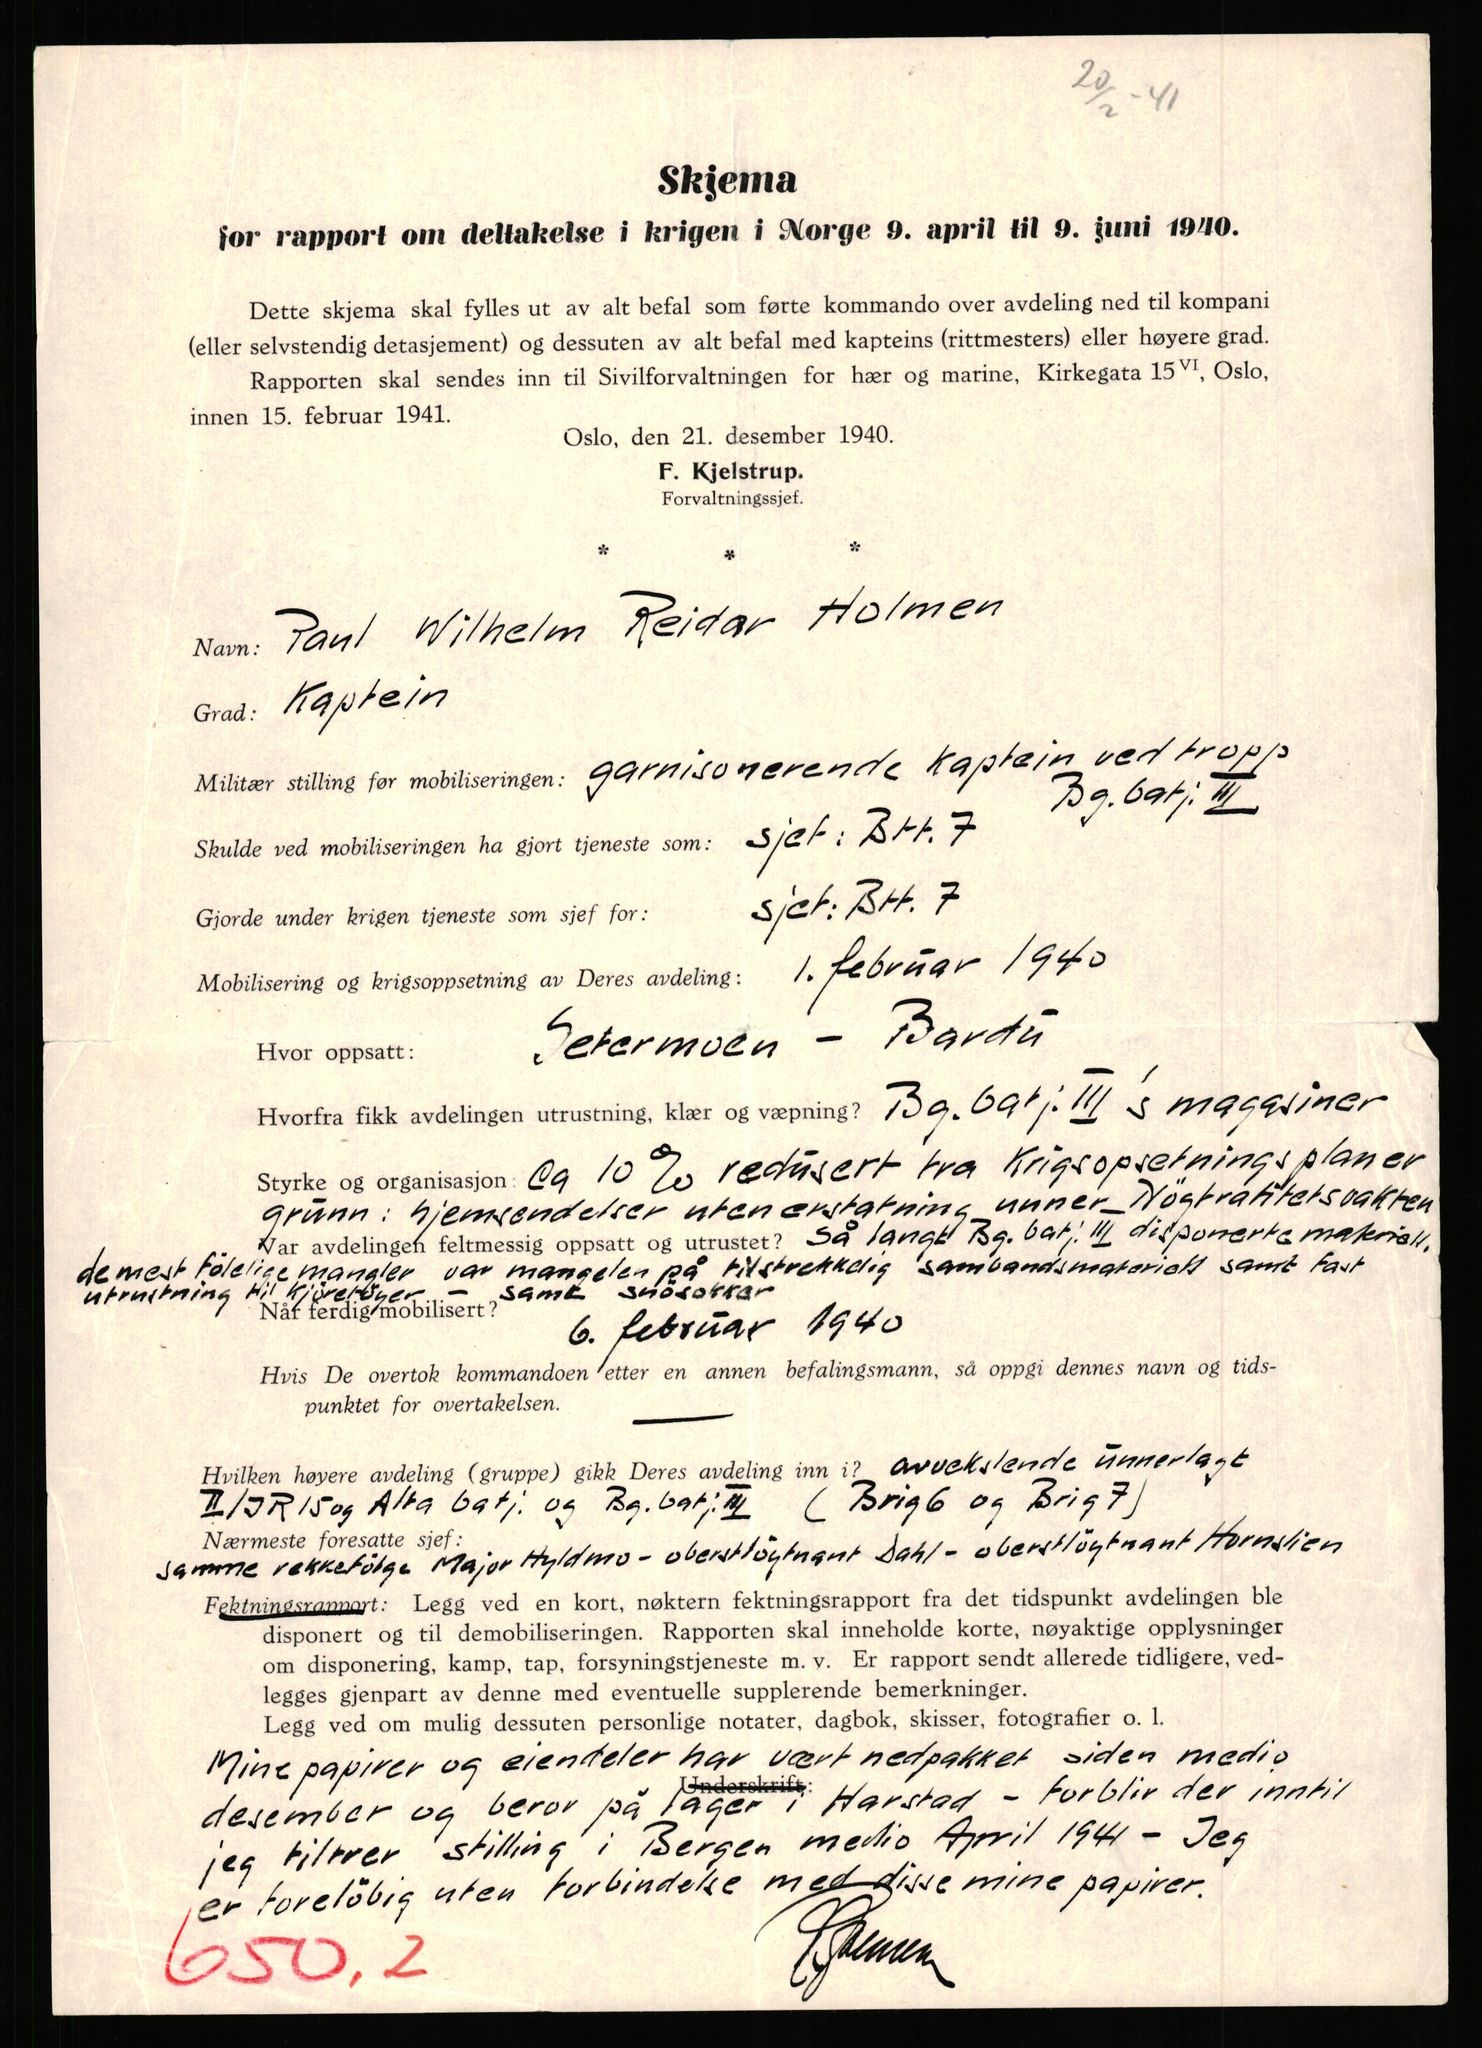 20/2 - 41
Skjema
for rapport om deltakelse i krigen i Norge 9. april til 9. juni 1940.
Dette skjema skal fylles ut av alt befal som førte kommando over avdeling ned til kompani
(eller selvstendig detasjement) og dessuten av alt befal med kapteins (rittmesters) eller høyere grad.
Rapporten skal sendes inn til Sivilforvaltningen for hær og marine, Kirkegata 15 VI, Oslo,
innen 15. februar 1941.
Oslo, den 21. desember 1940.
F. Kjelstrup.
Forvaltningssjef.
* * *
Navn: Paul Wilhelm Reidar Holmen
Grad: Kaptein
Militær stilling før mobiliseringen: garnisonerende kaptein ved tropp
Bg. batj. III
Skulde ved mobiliseringen ha gjort tjeneste som: sjef: Btt. 7
Gjorde under krigen tjeneste som sjef for: sjef: Btt. 7
Mobilisering og krigsoppsetning av Deres avdeling: 1. februar 1940
Hvor oppsatt: Setermoen - Bardu
Hvorfra fikk avdelingen utrustning, klær og væpning? Bg. batj. III's magasiner
Styrke og organisasjon: Ca 10 % redusert fra krigsopsetningsplaner
grunn: hjemsendelser uten erstatning unner Nögtralitetsvakten
Var avdelingen feltmessig oppsatt og utrustet? Så langt Bg. batj. III disponerte materiell.
de mest fölelige mangler var mangelen på tilstrekkelig sambandsmateriell samt fast
utrustning til kjöretöyer - samt snösokker
Når ferdig mobilisert? 6. februar 1940
Hvis De overtok kommandoen etter en annen befalingsmann, så oppgi dennes navn og tids-
punktet for overtakelsen. —
Hvilken høyere avdeling (gruppe) gikk Deres avdeling inn i? avvekslende unnerlagt
II/IR 15 og Alta batj. og Bg. batj. III (Brig 6 og Brig 7)
Nærmeste foresatte sjef:
samme rekkefölge Major Hyldmo - oberstlöytnant Dahl - oberstlöytnant Hornslien
Fektningsrapport: Legg ved en kort, nøktern fektningsrapport fra det tidspunkt avdelingen ble
disponert og til demobiliseringen. Rapporten skal inneholde korte, nøyaktige opplysninger
om disponering, kamp, tap, forsyningstjeneste m. v. Er rapport sendt allerede tidligere, ved-
legges gjenpart av denne med eventuelle supplerende bemerkninger.
Legg ved om mulig dessuten personlige notater, dagbok, skisser, fotografier o. l.
Mine papirer og eiendeler har vært nedpakket siden medio
Underskrift:
desember og beror på lager i Harstad - forblir der inntil
jeg tiltrer stilling i Bergen medio April 1941 - Jeg
er foreløbig uten forbindelse med disse mine papirer.
650,2